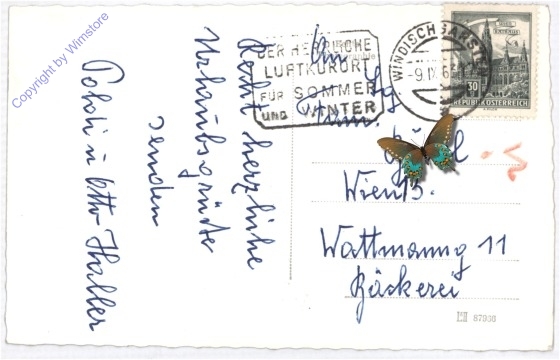 Copyright by Wimstore
Recht herzliche
Urlaubsgrüße
senden
Poldi u Otto Haller
DER HERRLICHE
LUFTKURORT
FÜR SOMMER
und WINTER
WINDISCHGARSTEN
-9.IX.6
30
REPUBLIK ÖSTERREICH
An
Fam.
Wien 13.
Wattmanng 11
Bäckerei
87936